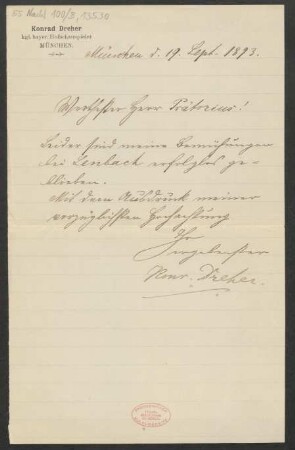 Konrad Dreher
kgl. bayer. Hofschauspieler
MÜNCHEN.
München d. 19. Sept. 1893.
Werthester Herr Prätorius!
Leider sind meine Bemühungen
bei Lenbach erfolglos ge-
blieben.
Mit dem Ausdruck meiner
vorzüglichsten Hochachtung
Ihr
ergebenster
Konr. Dreher.